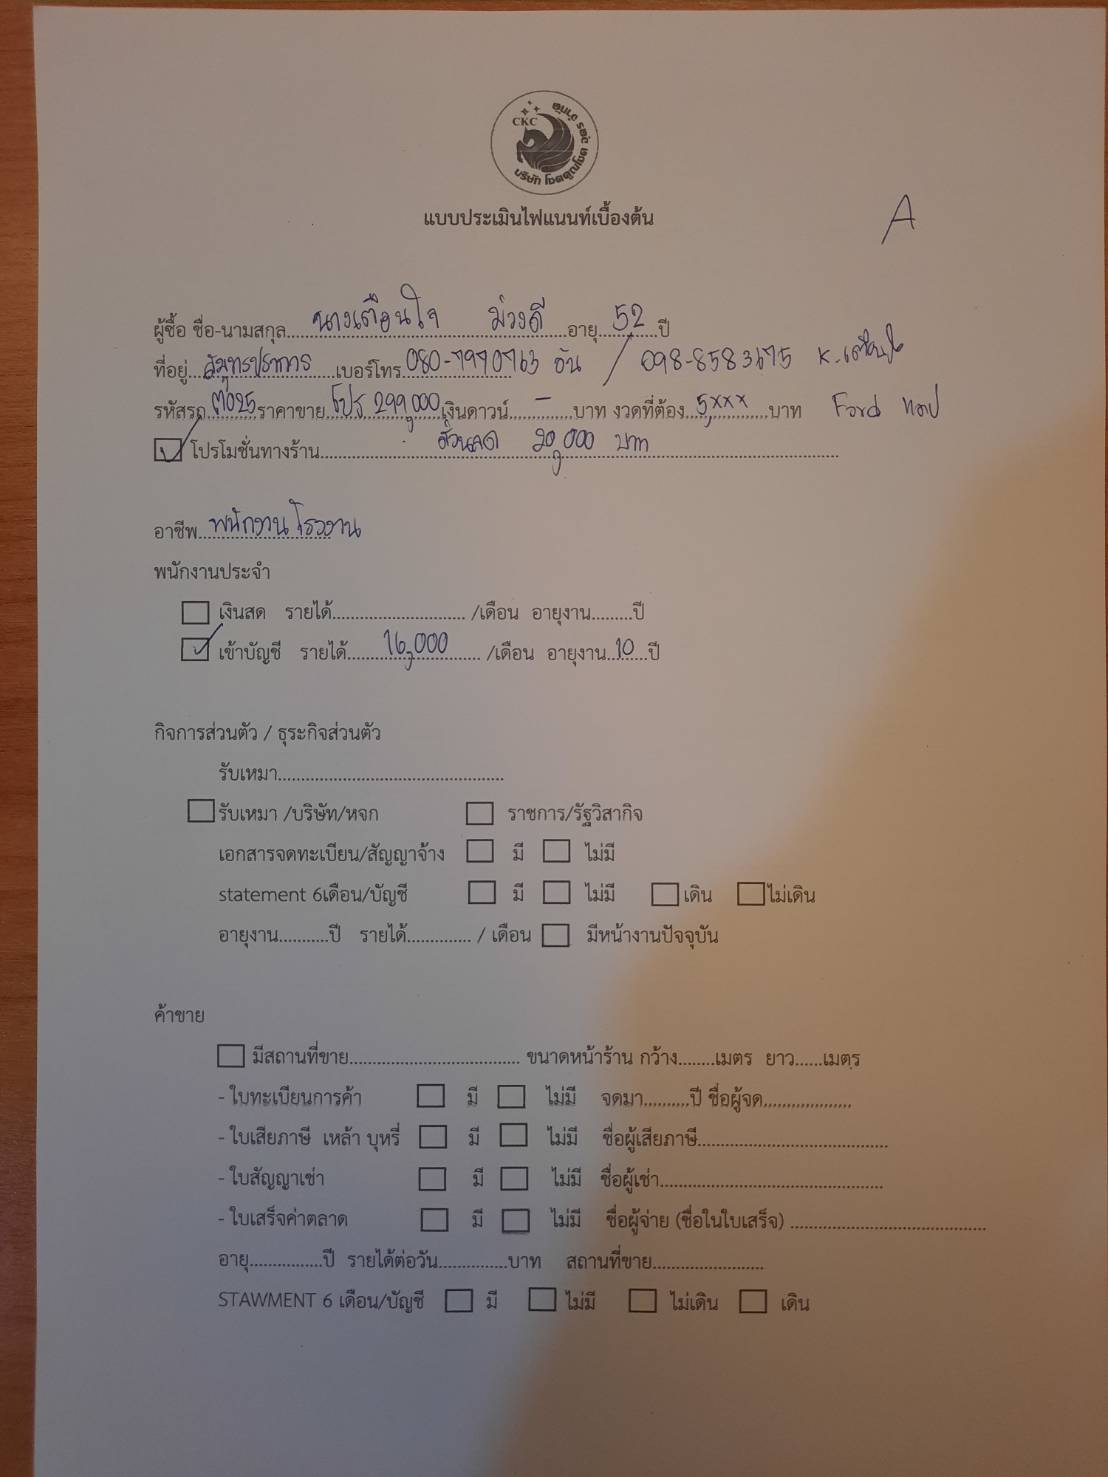 CKC
บริษัท โชคคูณโชค
แบบประเมินไฟแนนท์เบื้องต้น
A
ผู้ซื้อ ชื่อ-นามสกุล....นางเตือนใจ ม่วงดี....อายุ....52....ปี
ที่อยู่....สมุทรปราการ....เบอร์โทร.080-7970763 อัน / 098-8583675 K.เตือนใจ
รหัสรถ..ตู้025..ราคาขาย..โปร 299,000..เงินดาวน์....-....บาท งวดที่ต้อง..5,xxx....บาท Ford
✓ โปรโมชั่นทางร้าน....ส่วนลด 20,000 บาท....
อาชีพ..พนักงานโรงงาน
พนักงานประจำ
☐ เงินสด รายได้............................ /เดือน อายุงาน.........ปี
✓ เข้าบัญชี รายได้........16,000....... /เดือน อายุงาน..10...ปี
กิจการส่วนตัว / ธุระกิจส่วนตัว
รับเหมา.................................................
☐ รับเหมา /บริษัท/หจก ☐ ราชการ/รัฐวิสากิจ
เอกสารจดทะเบียน/สัญญาจ้าง ☐ มี ☐ ไม่มี
statement 6เดือน/บัญชี ☐ มี ☐ ไม่มี ☐ เดิน ☐ ไม่เดิน
อายุงาน...........ปี รายได้.............. / เดือน ☐ มีหน้างานปัจจุบัน
ค้าขาย
☐ มีสถานที่ขาย..................................... ขนาดหน้าร้าน กว้าง........เมตร ยาว......เมตร
- ใบทะเบียนการค้า ☐ มี ☐ ไม่มี จดมา..........ปี ชื่อผู้จด...................
- ใบเสียภาษี เหล้า บุหรี่ ☐ มี ☐ ไม่มี ชื่อผู้เสียภาษี..........................................
- ใบสัญญาเช่า ☐ มี ☐ ไม่มี ชื่อผู้เช่า................................................
- ใบเสร็จค่าตลาด ☐ มี ☐ ไม่มี ชื่อผู้จ่าย (ชื่อในใบเสร็จ) ..........................................
อายุ................ปี รายได้ต่อวัน...............บาท สถานที่ขาย........................
STAWMENT 6 เดือน/บัญชี ☐ มี ☐ ไม่มี ☐ ไม่เดิน ☐ เดิน